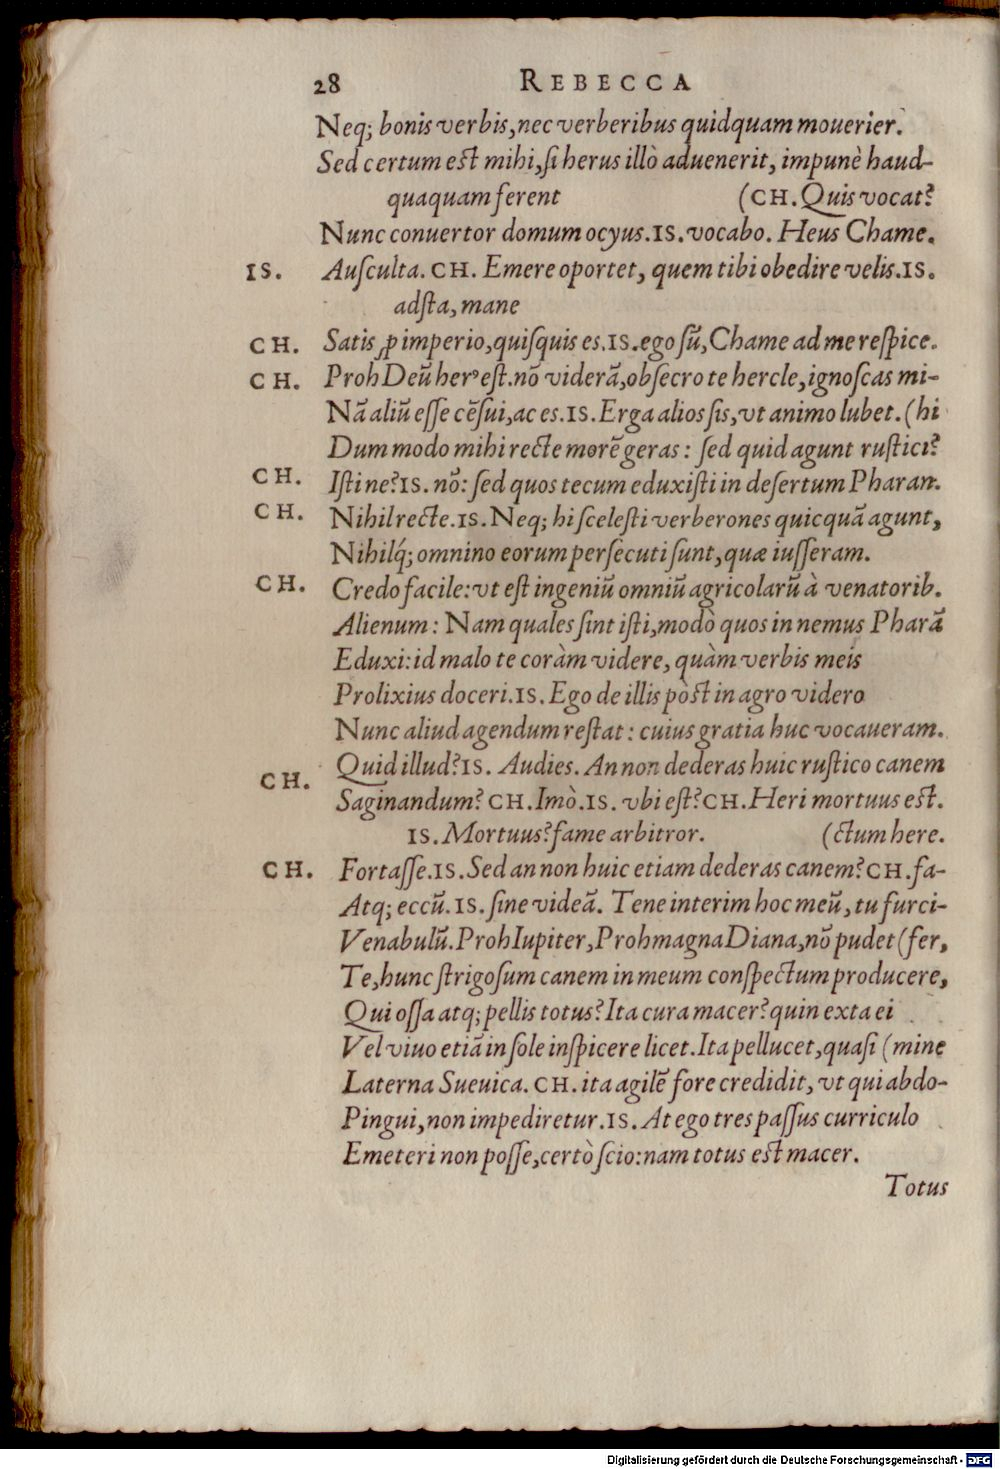 28 REBECCA
Neq; bonis verbis, nec verberibus quidquam mouerier.
Sed certum est mihi, ſi herus illò aduenerit, impunè haud-
quaquam ferent (CH. Quis vocat?
Nunc conuertor domum ocyus. IS. vocabo. Heus Chame.
IS. Auſculta. CH. Emere oportet, quem tibi obedire velis. IS.
adſta, mane
CH. Satis ꝓ imperio, quiſquis es. IS. ego ſũ, Chame ad me reſpice.
CH. Proh Deũ herꝰ eſt. nõ viderã, obſecro te hercle, ignoſcas mi-
Nã aliũ eſſe cẽſui, ac es. IS. Erga alios ſis, vt animo lubet. (hi
Dum modo mihi recte morẽ geras: ſed quid agunt ruſtici?
CH. Iſtine? IS. nõ: ſed quos tecum eduxiſti in deſertum Pharan.
CH. Nihil recte. IS. Neq; hi ſceleſti verberones quicquã agunt,
Nihilq́; omnino eorum perſecuti ſunt, quæ iuſſeram.
CH. Credo facile: vt eſt ingeniũ omniũ agricolarũ à venatorib.
Alienum: Nam quales ſint iſti, modò quos in nemus Pharã
Eduxi: id malo te coràm videre, quàm verbis meis
Prolixius doceri. IS. Ego de illis pòst in agro videro
Nunc aliud agendum reſtat: cuius gratia huc vocaueram.
CH. Quid illud? IS. Audies. An non dederas huic ruſtico canem
Saginandum? CH. Imò. IS. vbi eſt? CH. Heri mortuus est.
IS. Mortuus? fame arbitror. (ctum here.
CH. Fortaſſe. IS. Sed an non huic etiam dederas canem? CH. fa-
Atq; eccũ. IS. ſine videã. Tene interim hoc meũ, tu furci-
Venabulũ. Proh Iupiter, Proh magna Diana, nõ pudet (fer,
Te, hunc ſtrigoſum canem in meum conſpectum producere,
Qui oſſa atq; pellis totus? Ita cura macer? quin exta ei
Vel viuo etiã in ſole inſpicere licet. Ita pellucet, quaſi (mine
Laterna Sueuica. CH. ita agilẽ fore credidit, vt qui abdo-
Pingui, non impediretur. IS. At ego tres paſſus curriculo
Emeteri non poſſe, certò ſcio: nam totus est macer.
Totus
Digitalisierung gefördert durch die Deutsche Forschungsgemeinschaft - DFG